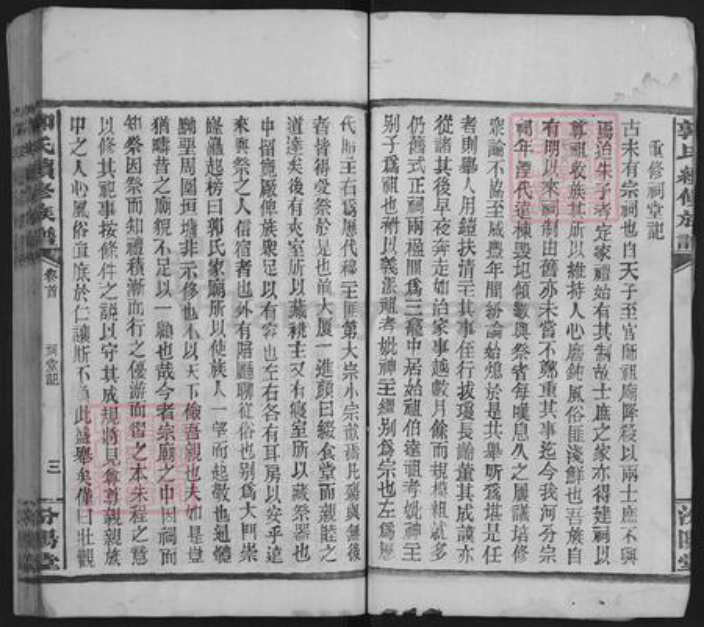 重修祠堂記
古未有宗祠也自天子至官師祖廟降殺以兩士庶不與
焉迨朱子者定家禮始有其制故士庶之家亦得建祠以
尊祖收族其所以維持人心磨鈍風俗匪淺鮮也吾族自
有明以來祠制由舊亦未嘗不鄭重其事迄今我河分宗
祠年湮代遠棟毀垣傾數與祭者每嘆息久之屢議培修
眾論不協至咸豐年間紛論始熄於是共舉昕為堪是任
者則舉人用鎧扶清主其事侄行拔瓊長齡董其成讓亦
從諸其後早夜奔走如治家事越數月餘而規模粗就多
仍舊式正祠兩楹關為三龕中居始祖伯達祖考妣神主
別子為祖也祔以義派祖考妣神主繼別為宗也左為歷
代昭主右為歷代穆主匪第大宗小宗歆禱比殤與無後
者皆得受祭於是也前大廈一進顏曰綴食堂而親睦之
道達矣後有夾室所以藏祧主又有寢室所以藏祭器也
中留寬廠俾族眾足以有容也左右各有耳房以安乎遠
來與祭之人信宿者也外有階廳聯從俗也別為大門崇
隆矗起榜曰郭氏家廟所以使族人一望而起敬也魁體
黝堊周圍垣墉非示修也不以天下儉吾親也夫如是豈
猶疇昔之廟貌不足以一觀也哉今者宗廟之中因祠而
知祭因祭而知禮積漸而行之優游而習之本朱程之意
以修其祀事按條件之議以守其成規將見尊尊親親族
中之人心風俗直底於仁讓斯不負此盛舉矣僅曰壯觀
郭氏續修族譜
卷首
祠堂記
三
汾陽堂
郭氏續修族譜
汾陽堂